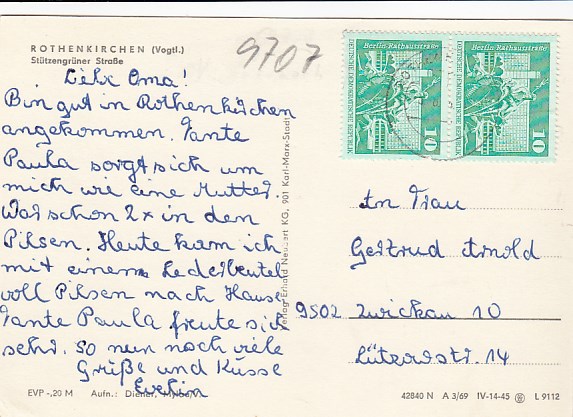 ROTHENKIRCHEN (Vogtl.)
Stützengrüner Straße
9707
Liebe Oma!
Bin gut in Rothenkirchen
angekommen. Tante
Paula sorgt sich um
mich wie eine Mutter.
War schon 2x in den
Pilsen. Heute kam ich
mit einem Lederbeutel
voll Pilsen nach Hause
Tante Paula freute sich
sehr. So nun noch viele
Grüße und Küsse
Evelin
EVP -,20 M Aufn.: Diener, Mylau
Verlag Erhard Neubert KG, 901 Karl-Marx-Stadt
Berlin Rathausstraße
DEUTSCHE DEMOKRATISCHE REPUBLIK
10
Berlin Rathausstraße
DEUTSCHE DEMOKRATISCHE REPUBLIK
10
An Frau
Gertrud Arnold
9502 Zwickau 10
Lützowstr. 14
42840 N A 3/69 IV-14-45 L 9112